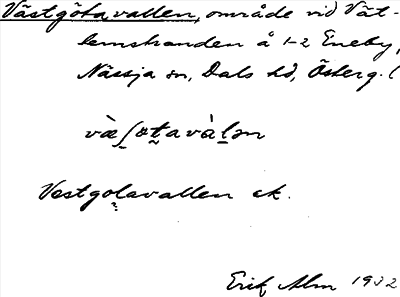 Västgötavallen, område vid Vät-
ternstranden å 1-2 Eneby,
Nässja sn, Dals hd, Österg. (
Vestgotavallen ek.
Erik Alm 1932